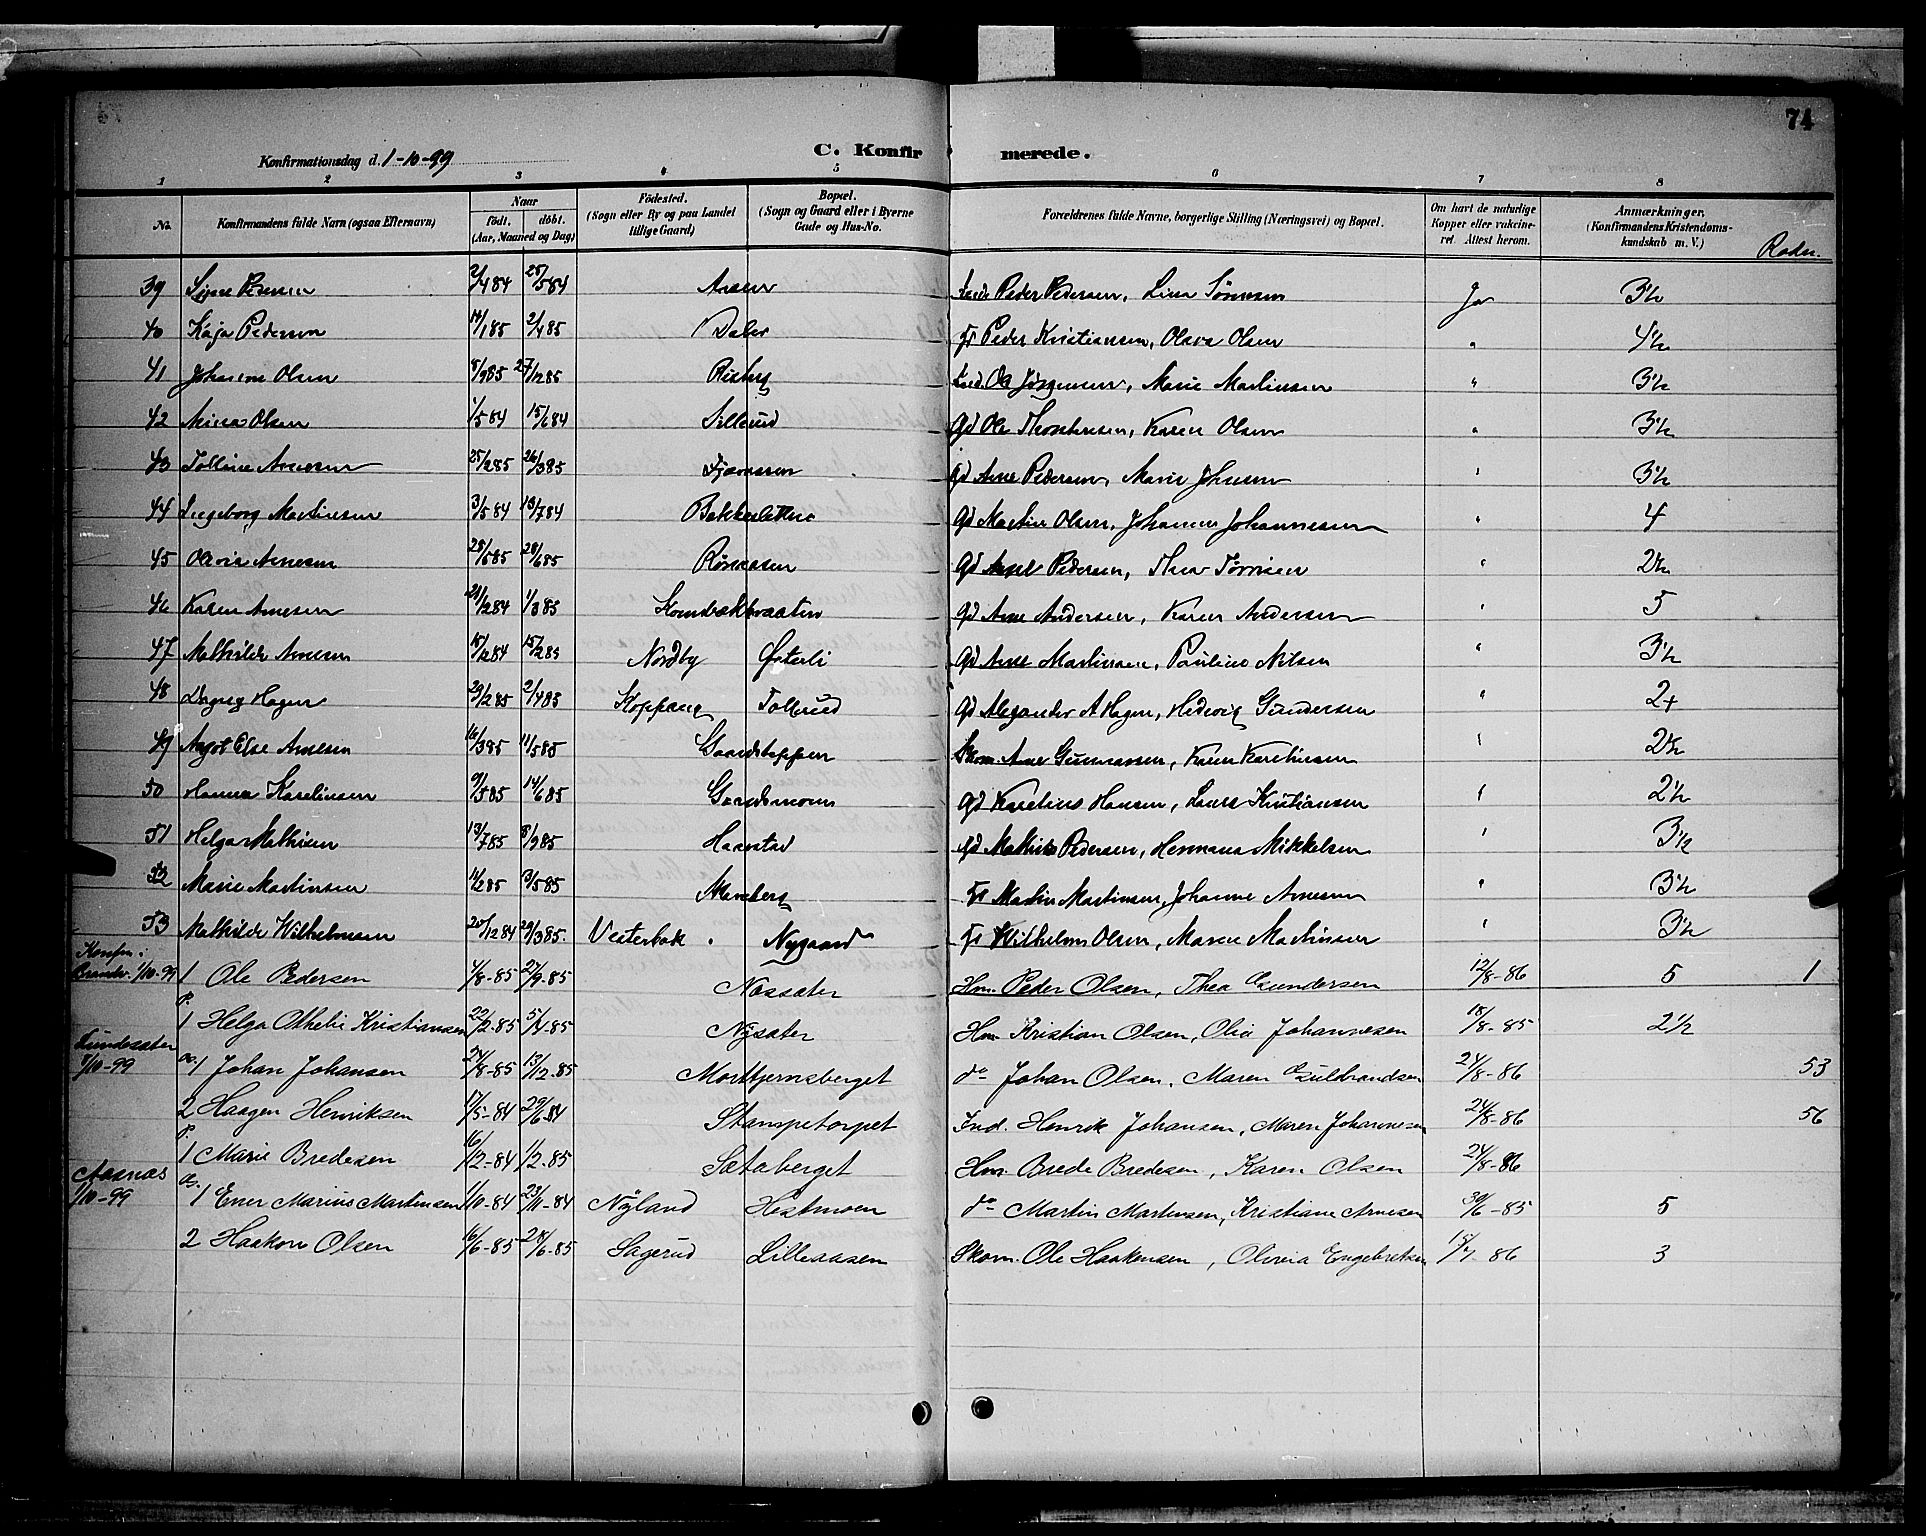 74
Konfirmationsdag d. 1-10-99 C. Konfirmerede.
1 2 3 4 5 6 7 8
No. Konfirmandens fulde Navn (ogsaa Efternavn) Naar født. døbt. (Aar, Maaned og Dag) Fødested. (Sogn eller By og paa Landet tillige Gaard) Bopæl. (Sogn og Gaard eller i Byerne Gade og Hus-No. Forældrenes fulde Navne, borgerlige Stilling (Næringsvei) og Bopæl. Om havt de naturlige Kopper eller vakcineret. Attest herom. Anmærkninger. (Konfirmandens Kristendomskundskab m. V.)
39 Signe Pedersen 2/4 84 25/5 84 Aasen Peder Pedersen, Lina Ja 3½
40 Kaja Pedersen 14/1 85 2/4 85 Daler Fr Peder Kristiansen, Olava Olsen " 4½
41 Johanne Olsen 8/9 85 27/12 85 Risberg Ole Jørgensen, Marie Martinsen " 3½
42 Olsen 1/5 84 15/6 84 Sillerud Gd Ole Thorstensen, Karen Olsen " 3½
43 Arnesen 25/2 85 26/3 85 Gd Arne Pedersen, Marie Johnsen " 3½
44 Ingeborg Martinsen 3/5 84 13/7 84 Gd Martin Olsen, Johanne Johannesen " 4
45 Arnesen 25/5 85 28/6 85 Rønaasen Gd Arne Pedersen, Thea " 2½
46 Karen Arnesen 28/12 84 1/3 85 Gd Arne Andersen, Karen Andersen " 5
47 Mathilde Arnesen 15/12 84 15/2 85 Nordby Østerli Gd Arne Martinsen, Pauline Nilsen " 3½
48 Dagny Hagen 23/2 85 2/4 85 Koppang Tollerud Gd Alexander A Hagen, Hedevig Gundersen " 2+
49 Else Arnesen 16/3 85 11/5 85 Skom. Arne Gunnarsen, Karen " 2½
50 Hanna Karelinsen 9/5 85 14/6 85 Gaardsmoen Gd Karelius Hansen, Laura Kristiansen " 2½
51 Helga Mathisen 13/7 85 8/9 85 Haarstad Gd Mathis Pedersen, Hermana Mikkelsen " 3½
52 Marie Martinsen 14/2 85 3/5 85 Fr Martin Martinsen, Johanne Arnesen " 3½
53 Mathilde Wilhelmsen 20/12 84 29/3 85. Vesterbak Nygaard Fr Wilhelm Olsen, Maren Martinsen " 3½
Konfm. i
1/10-99 1 Ole Pedersen 4/8-85 27/9-85 Næssæter Hm. Peder Olsen, Thea Gundersen 12/8-86 5 1
P.
1 Helga Othelie Kristiansen 22/2-85 5/4-85 Nysæter Hm. Kristian Olsen, Olia Johannesen 18/8-85 2½
Lundesæter
8/10-99 1 Johan Johansen 24/8-85 13/12-85 Morttjernsberget do Johan Olsen, Maren Guldbrandsen 24/8-86 53
2 Haagen Henriksen 17/5-84 29/6-84 Stampetorpet Ind. Henrik Johansen, Maren Johannesen 24/8-86 56
P.
1 Marie Bredesen 16/12-84 1/2-85 Sætaberget Hm. Brede Bredesen, Karen Olsen 24/8-86
Aasnæs
1/10-99 1 Ener Marius Martinsen 1/10-84 23/11-84 Nyland Hestmoen do Martin Martinsen, Kristiane Arnesen 30/6-85 5
2 Haakon Olsen 16/6-85 28/6-85 Sagerud Lilleaasen Skom. Ole Haakensen, Olivia Engebretsen 3